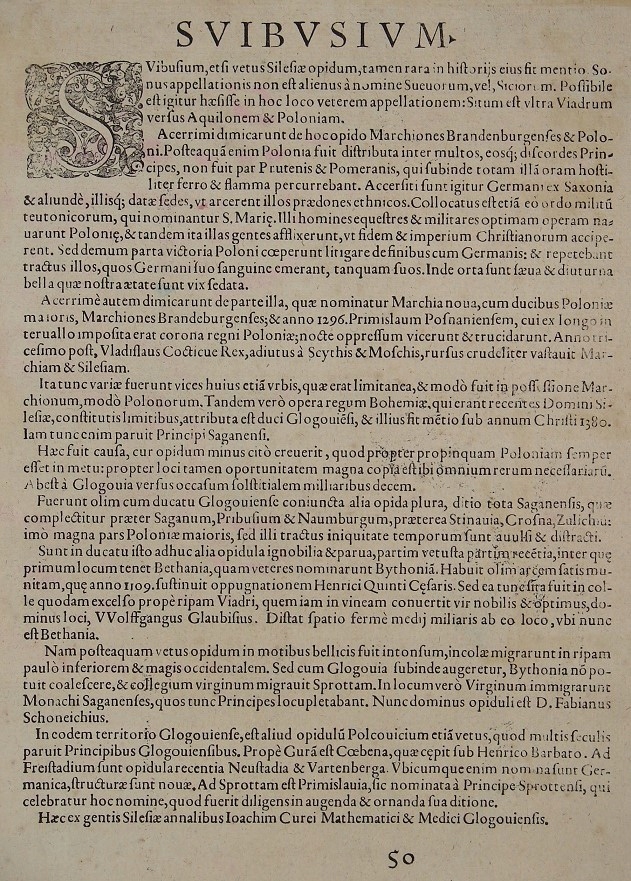 SVIBVSIVM.
SVibusium, etsi vetus Silesiæ opidum, tamen rara in historijs eius fit mentio. So-
nus appellationis non est alienus à nomine Sueuorum, vel, Possibile
est igitur hæsisse in hoc loco veterem appellationem: Situm est vltra Viadrum
versus Aquilonem & Poloniam.
Acerrimi dimicarunt de hoc opido Marchiones Brandenburgenses & Polo-
ni. Posteaquã enim Polonia fuit distributa inter multos, eosq; discordes Prin-
cipes, non fuit par Prutenis & Pomeranis, qui subinde totam illã oram hosti-
liter ferro & flamma percurrebant. Accersiti sunt igitur Germani ex Saxonia
& aliundè, illisq; datæ sedes, vt arcerent illos prædones ethnicos. Collocatus est etiã eo ordo militũ
teutonicorum, qui nominantur S. Marię. Illi homines equestres & militares optimam operam na-
uarunt Polonię, & tandem ita illas gentes afflixerunt, vt fidem & imperium Christianorum accipe-
rent. Sed demum parta victoria Poloni cœperunt litigare de finibus cum Germanis: & repetebant
tractus illos, quos Germani suo sanguine emerant, tanquam suos. Inde orta sunt sæua & diuturna
bella quæ nostra ætate sunt vix sedata.
Acerrimè autem dimicarunt de parte illa, quæ nominatur Marchia noua, cum ducibus Poloniæ
maioris, Marchiones Brandeburgenses; & anno 1296. Primislaum Posnaniensem, cui ex longo in
teruallo imposita erat corona regni Poloniæ; nocte oppressum vicerunt & trucidarunt. Anno tri-
cesimo post, Vladislaus Cocticue Rex, adiutus à Scythis & Moschis, rursus crudeliter vastauit Mar-
chiam & Silesiam.
Ita tunc variæ fuerunt vices huius etiã vrbis, quæ erat limitanea, & modò fuit in possessione Mar-
chionum, modò Polonorum. Tandem verò opera regum Bohemiæ, qui erant recentes Domini Si-
lesiæ, constitutis limitibus, attributa est duci Glogouiẽsi, & illius fit mẽtio sub annum Christi 1380.
Iam tunc enim paruit Principi Saganensi.
Hæc fuit causa, cur opidum minus citò creuerit, quod propter propinquam Poloniam semper
esset in metu: propter loci tamen oportunitatem magna copia est ibi omnium rerum necessariarũ.
Abest à Glogouia versus occasum solstitialem milliaribus decem.
Fuerunt olim cum ducatu Glogouiense coniuncta alia opida plura, ditio tota Saganensis, quæ
complectitur præter Saganum, Pribusium & Naumburgum, præterea Stinauia, Crosna, Zulichia:
imò magna pars Poloniæ maioris, sed illi tractus iniquitate temporum sunt auulsi & distracti.
Sunt in ducatu isto adhuc alia opidula ignobilia & parua, partim vetusta partim recẽtia, inter quę
primum locum tenet Bethania, quam veteres nominarunt Bythoniã. Habuit olim arcem satis mu-
nitam, quę anno 1109. sustinuit oppugnationem Henrici Quinti Cęsaris. Sed ea tunc sita fuit in col-
le quodam excelso propè ripam Viadri, quem iam in vineam conuertit vir nobilis & optimus, do-
minus loci, VVolffgangus Glaubisius. Distat spatio fermè medij miliaris ab eo loco, vbi nunc
est Bethania.
Nam posteaquam vetus opidum in motibus bellicis fuit intonsum, incolæ migrarunt in ripam
paulò inferiorem & magis occidentalem. Sed cum Glogouia subinde augeretur, Bythonia nõ po-
tuit coalescere, & collegium virginum migrauit Sprottam. In locum verò Virginum immigrarunt
Monachi Saganenses, quos tunc Principes locupletabant. Nunc dominus opiduli est D. Fabianus
Schoneichius.
In eodem territorio Glogouiense, est aliud opidulũ Polcouicium etiã vetus, quod multis seculis
paruit Principibus Glogouiensibus. Propè Gurã est Cœbena, quæ cępit sub Henrico Barbato. Ad
Freistadium sunt opidula recentia Neustadia & Vartenberga. Vbicumque enim nomina sunt Ger-
manica, structuræ sunt nouæ. Ad Sprottam est Primislauia, sic nominata à Principe Sprottensi, qui
celebratur hoc nomine, quod fuerit diligens in augenda & ornanda sua ditione.
Hæc ex gentis Silesiæ annalibus Ioachim Curei Mathematici & Medici Glogouiensis.
50